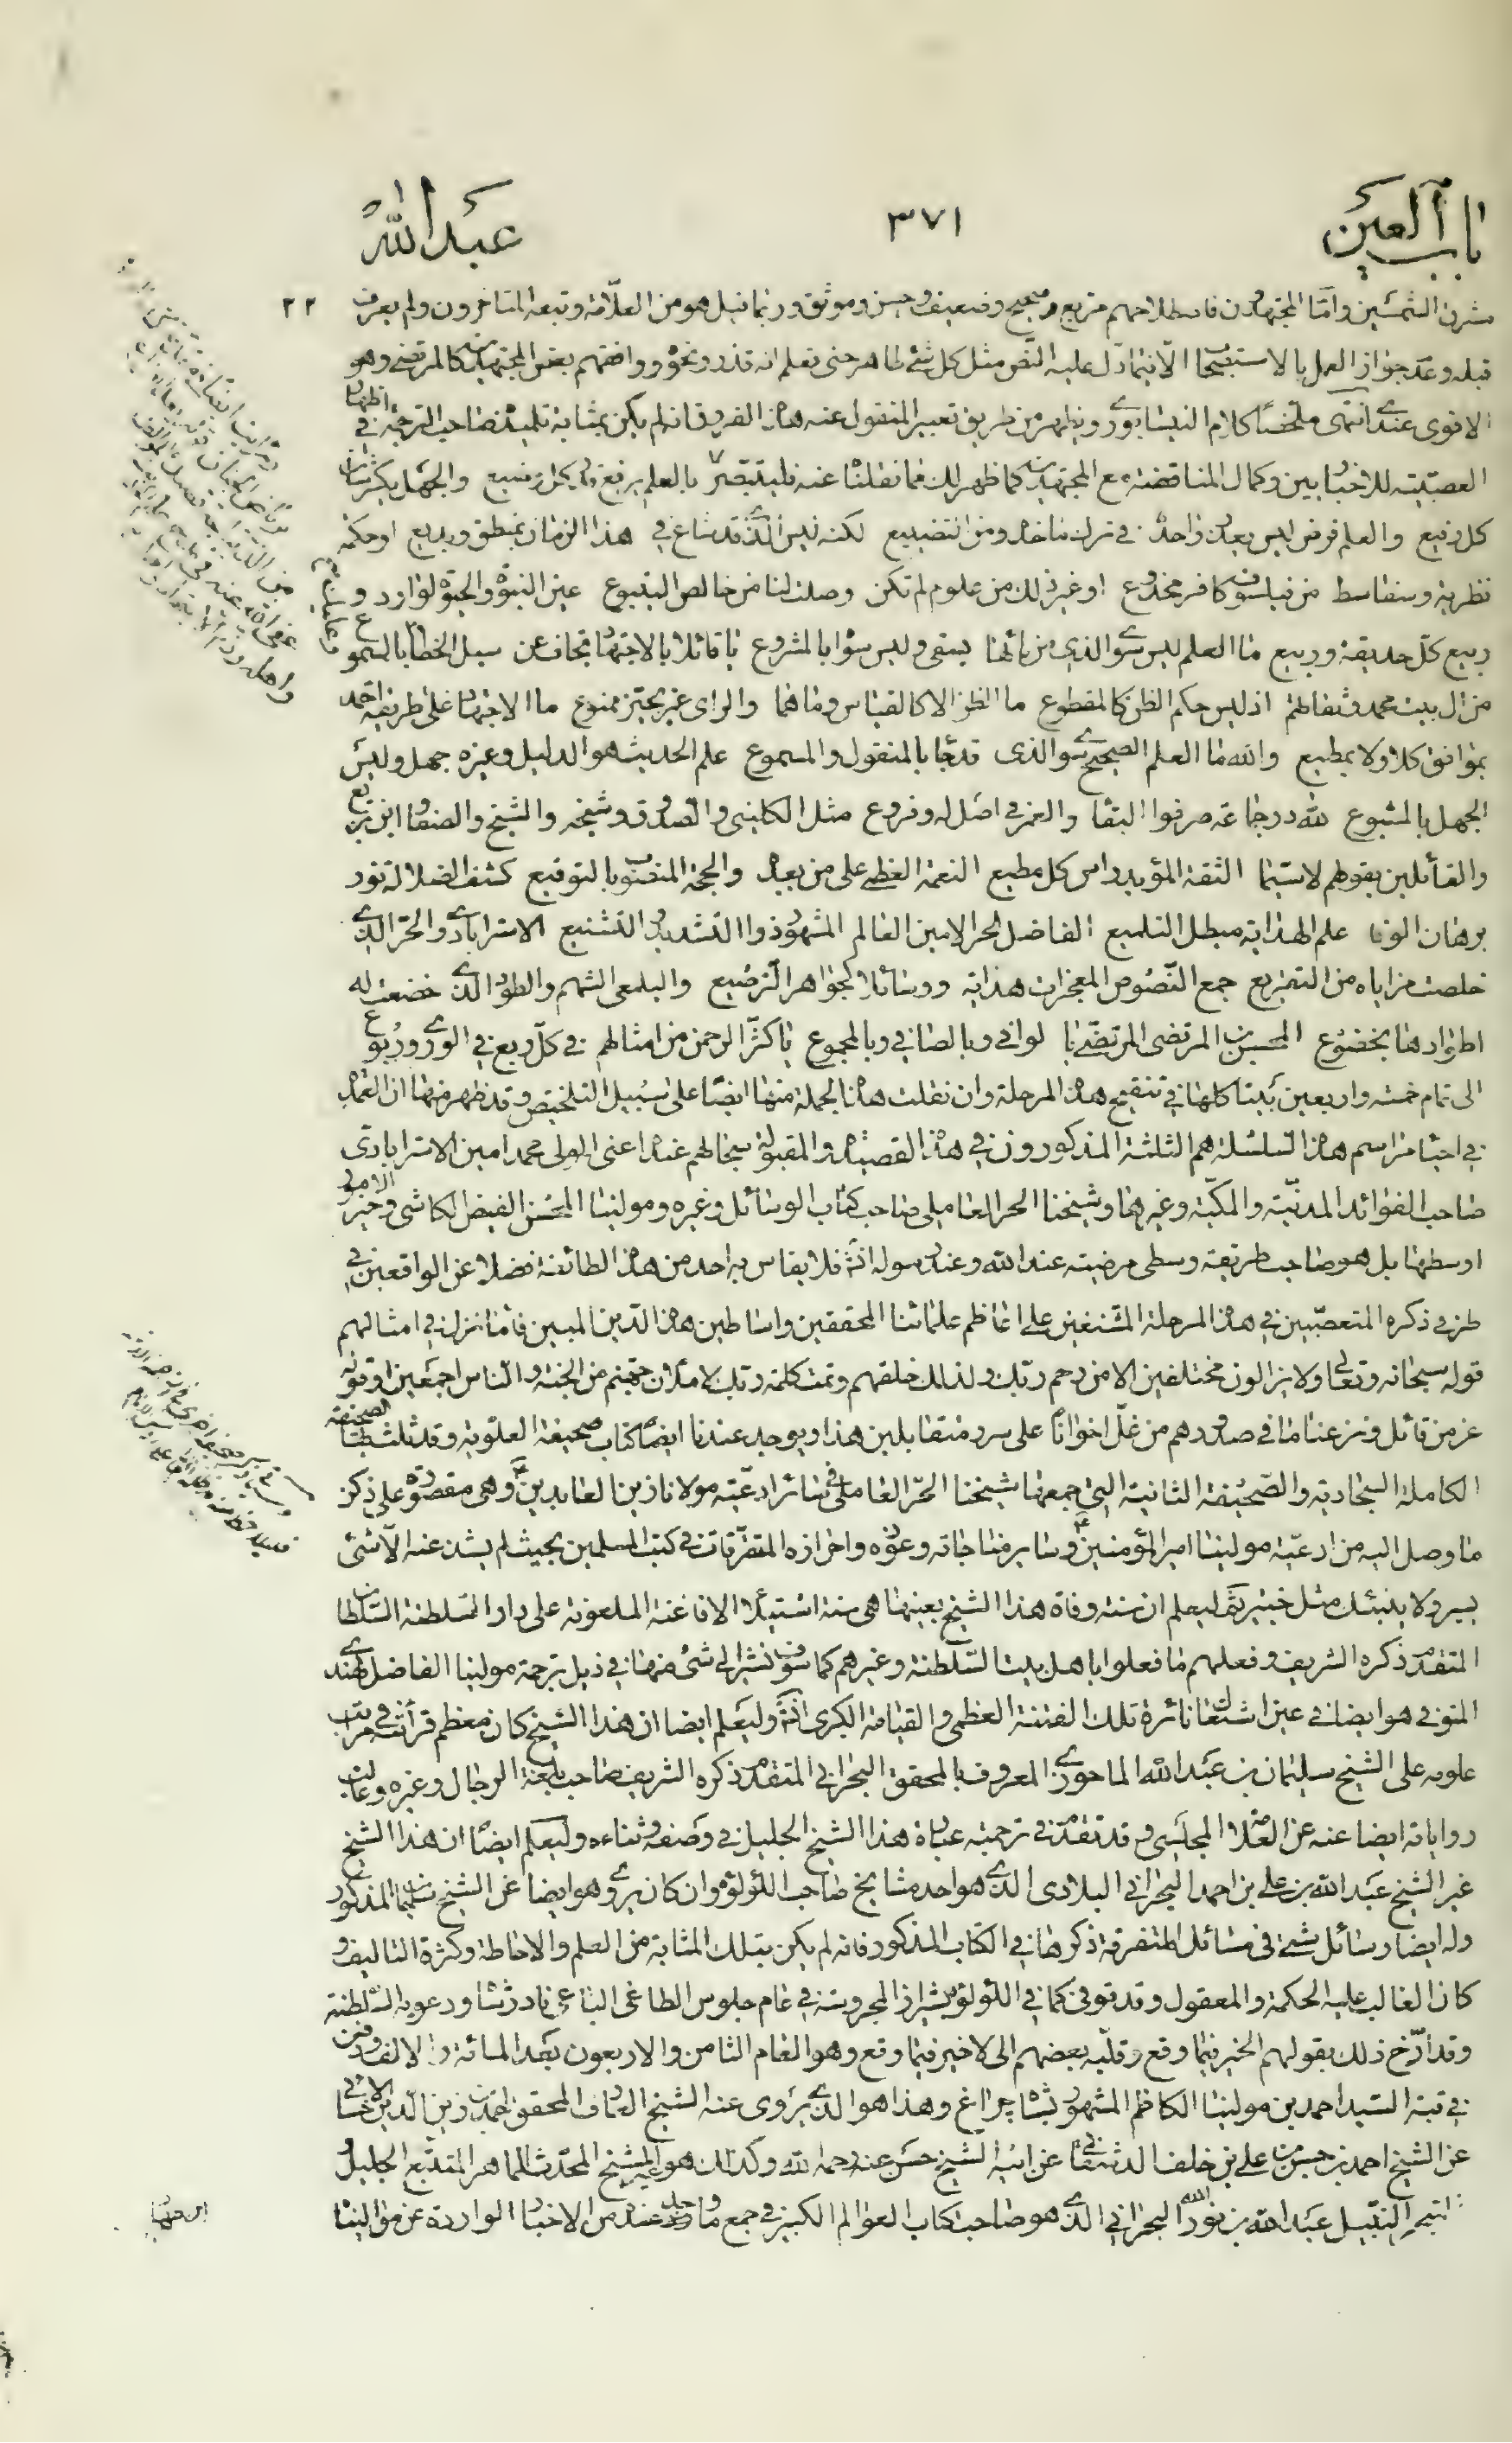 باب العين ٣٧١ عبد الله
٢٢
مشرق الشمسين واما المجتهدون فاصطلاحهم مربع صحيح وضعيف وحسن وموثق وربما قيل هو من العلامة وتبعه المتاخرون ولم يعرف
قبله وعدم جواز العمل بالاستصحاب الا فيما دل عليه النص مثل كل شئ طاهر حتى تعلم انه قذر ونحوه ووافقهم بعض المجتهدين كالمرتضى وهو
الاقوى عندي انتهى ملخصا كلام النيسابوري ويظهر من طريق تعبير المنقول عنه هذا الفروق انه لم يكن بمثابة تلميذه صاحب الترجمة في اظهار
العصبية للاخباريين وكمال المناقضة مع المجتهدين كما ظهر لك فما نقلنا عنه فليتبصر بالعلم يرفع قدر كل رفيع والجهل يكسر شان
كل رفيع والعلم فرض ليس يعذر واحد في ترك ماخذه ومن التضييع لكنه ليس الذي قد شاع في هذا الزمان بمنطق وبديع او حكمة
نظرية وسفاسط من فيلسوف كافر مخدوع او غير ذلك من علوم لم تكن وصلت لنا من خالص الينبوع عين النبوة والحبوة لوارد و
ربيع كل حديقة وربيع ما العلم ليس سوى الذي من بابها يسقى وليس سوا بالمشروع يا قائلا بالاجتهاد تجاف عن سبل الخطا بالسمع
من ال بيت محمد وثقاتهم اذ ليس حكم الظن كالمقطوع ما الظن الا كالقياس وما هما والراي غير يحيز ممنوع ما الاجتهاد على طريقة احمد
بموافق كلا ولا بمطيع والله ما العلم الصحيح سوى الذي قد جا بالمنقول والمسموع علم الحديث هو الدليل وغيره جهل وليس
الجهل بالمتبوع لله در جماعة صرفوا البقا والعمر في اصل له وفروع مثل الكليني والصدوق وشيخه والشيخ والصفار ابن بزيع
والقائلين بقولهم لاسيما الثقة المؤيد راس كل مطيع النعمة العظمى على من بعده والحجة المنصوب بالتوقيع كشف الضلالة نور
برهان الوفا علم الهداية مبطل التلميع الفاضل الحبر الامين العالم المشهور ذو التشديد والتشنيع الاسترابادي والحر الذي
خلصت مزاياه من التفريع جمع النصوص المعجزات هداية ووسائلا كجواهر الترصيع والبلمعي الشهم والطود الذي خضعت له
اطوادها بخضوع المحسن بن المرتضى المرتضى بالوافي وبالصافي وبالمجموع يا كثر الرحمن من امثالهم في كل ريع في الورى وربوع
الى تمام خمسة واربعين بيتا كلها في تنقيح هذه المرحلة وان نقلت هذه الجملة منها ايضا على سبيل التلخيص وقد ظهر منها ان العمدة
في احياء مراسم هذه السلسلة هم الثلثة المذكورون في هذه القصيدة والمقبولة سجالهم عنده اعنى المولى محمد امين الاسترابادى
صاحب الفوائد المدنية والمكية وغيرهما وشيخنا الحر العاملي صاحب كتاب الوسائل وغيره ومولينا المحسن الفيض الكاشى وخير الامور
اوسطها بل هو صاحب طريقة وسطى مرضية عند الله وعند رسوله انه فلا يقاس به احد من هذه الطائفة فضلا عن الواقعين في
طرفي ذكره المتعصبين في هذه المرحلة المشنعين على اعاظم علمائنا المحققين واساطين هذا الدين المبين فاما نزل في امثالهم
قوله سبحانه وتعالى ولا يزالون مختلفين الا من رحم ربك ولذلك خلقهم وتمت كلمة ربك لاملان جهنم من الجنة والناس اجمعين او قوله
عز من قائل ونزعنا ما في صدورهم من غل اخوانا على سرر متقابلين هذا ويوجد عندنا ايضا كتاب صحيفة العلوية وقد ثلث بها الصحيفة
الكاملة السجادية والصحيفة الثانية التي جمعها شيخنا الحر العاملي في سائر ادعية مولانا زين العابدين ع وهى مقصورة على ذكر
ما وصل اليه من ادعية مولينا امير المؤمنين ع وساير مناجاته وعوذه واحرازه المتفرقات في كتب المسلمين بحيث لم يشذ عنه الا شئى
يسير ولا ينبئك مثل خبير ثم ليعلم ان سنة وفاة هذا الشيخ بعينها هى سنة استيلاء الافاغنة الملعونة على دار السلطنة السلطان
المتقدم ذكره الشريف وفعلهم ما فعلوا باهل بيت السلطنة وغيرهم كما سوف نشير الى شئ منها في ذيل ترجمة مولينا الفاضل الهندي
المتوفى هو ايضا في عين اشتعال نائرة تلك الفتنة العظمى والقيامة الكبرى انه وليعلم ايضا ان هذا الشيخ كان معظم قرائته في مراتب
علومه على الشيخ سليمان بن عبد الله الماحوزي المعروف بالمحقق البحراني المتقدم ذكره الشريف صاحب بلغة الرجال وغيره وغالب
رواياته ايضا عنه عن العلامة المجلسى وقد تقدم في ترجمته عبارة هذا الشيخ الجليل في وصفه وثنائه وليعلم ايضا ان هذا الشيخ
غير الشيخ عبد الله بن علي بن احمد البحراني البلادى الذي هو احد مشايخ صاحب اللؤلؤة وان كان يروي هو ايضا عن الشيخ سليمان المذكور
وله ايضا رسائل شتى في مسائل المتفرقة ذكرها في الكتاب المذكور فانه لم يكن بتلك المثابة من العلم والاحاطة وكثرة التاليف و
كان الغالب عليه الحكمة والمعقول وقد توفى كما في اللؤلؤة بشيراز المحروسة في عام جلوس الطاغى الباغى نادر شاه ودعويه السلطنة
وقد ارخ ذلك بقولهم الخير فيما وقع وقلبه بعضهم الى لا خير فيما وقع وهو العام الثامن والاربعون بعد المائة والالف ودفن
في قبة السيد احمد بن مولينا الكاظم المشهور بشاه چراغ وهذا هو الذي يروى عنه الشيخ العارف المحقق احمد بن زين الدين الاحسائي
عن الشيخ احمد بن حسن بن علي بن خلف الدمستاني عن ابيه الشيخ حسن عنه رحمه الله وكذلك هو غير الشيخ المحدث الماهر المتتبع الجليل و
المتبحر النبيل عبد الله بن نور الله البحراني الذي هو صاحب كتاب العوالم الكبير في جمع ما وجد عنده من الاخبار الواردة عن موالينا